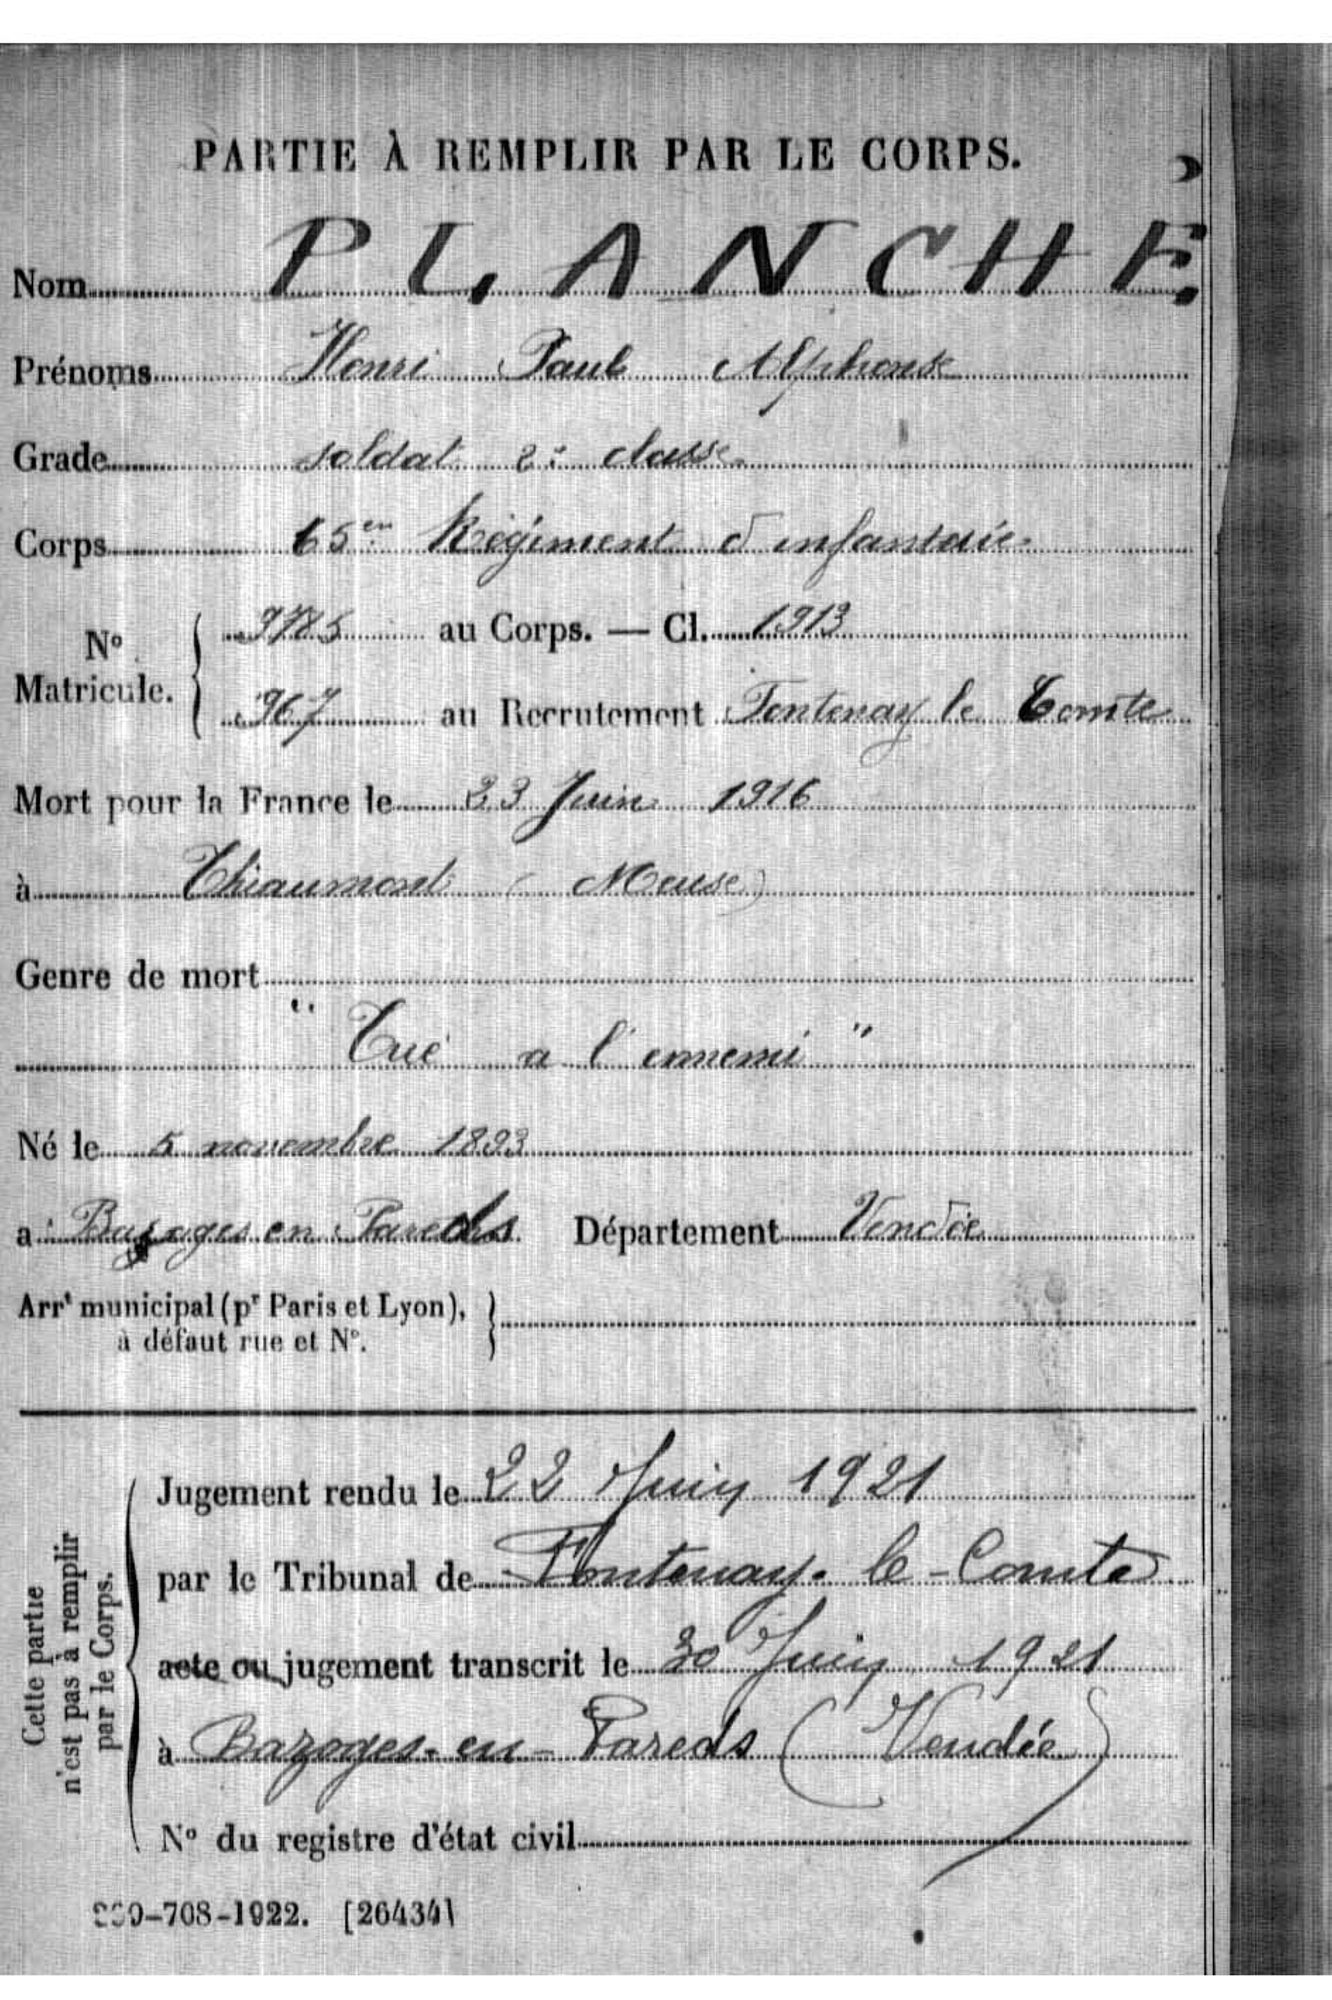 PARTIE À REMPLIR PAR LE CORPS.
Nom PLANCHE
Prénoms Henri Paul Alphonse
Grade soldat 2e classe
Corps 65en Régiment d'infanterie
No Matricule. { 9785 au Corps. — Cl. 1913
967 au Recrutement Fontenay le Comte
Mort pour la France le 23 Juin 1916
à Thiaumont (Meuse)
Genre de mort
" Tué a l'ennemi "
Né le 5 novembre 1893
a Bazoges en Pareds Département Vendée
Arrt municipal (pr Paris et Lyon), }
à défaut rue et No.
Cette partie
n'est pas à remplir
par le Corps.
Jugement rendu le 22 Juin 1921
par le Tribunal de Fontenay-le-Comte
acte ou jugement transcrit le 30 Juin 1921
à Bazoges-en-Pareds (Vendée)
No du registre d'état civil
-708-1922. [26434]